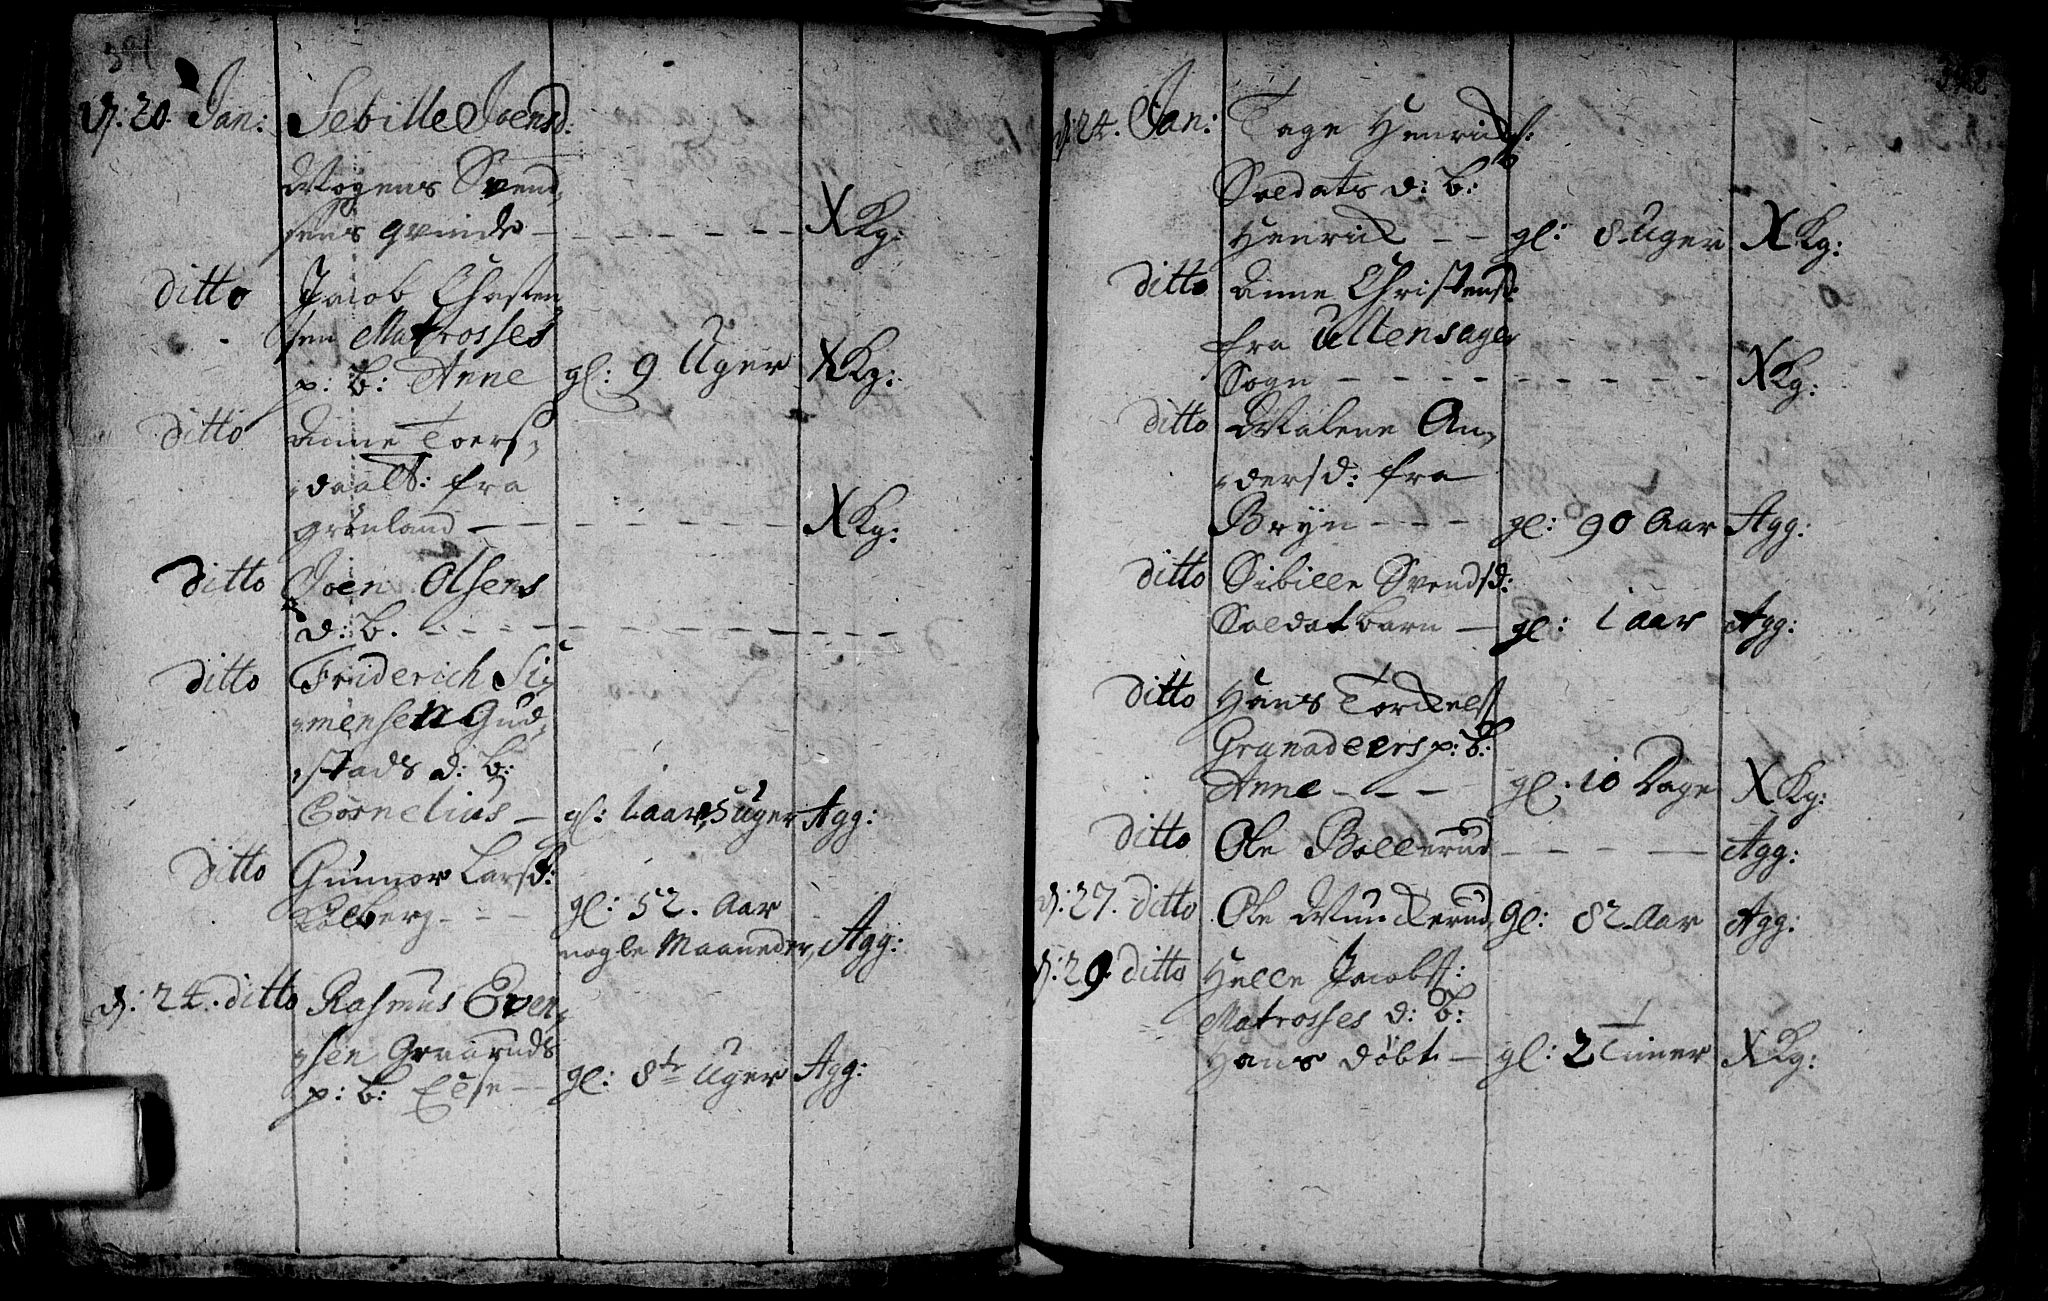 d: 20. Jan: Sebille Joensd:
Mogens Svend,
sens qvinde - - - - - - - X Kg:
ditto Jacob Chasten,
sen Matrosses
p: b: Anne gl: 9 Uger X Kg:
ditto Anne Toers,
daatt: fra
grønland - - - - - - - X Kg:
ditto Joen Olsens
d: b. - - - - - - - - -
ditto Friderich Si,
mensen Gud,
stads d: b:
Cornelius - gl: 1 aar, 5 Uger Agg:
ditto Gunnor Larsd:
Kolberg - - - gl: 52. Aar
nogle Maaneder, Agg:
d: 24. ditto Rasmus Even,
sen p: b: Else - - gl: 8te Uger Agg:
d: 24. Jan: Tage Henricks:
Soldats d: b:
Henrick - - gl: 8 Uger X Kg:
ditto Anne Christensd:
fra Ullensager
Sogn - - - - - - - - X Kg:
ditto Malene An,
dersd: fra
Bryn - - - - gl: 90 Aar Agg:
ditto Sibille Svendsd:
Soldat barn - gl: 1 aar Agg:
ditto Hans Torckels:
Granadeers p: b:
Anne - - - gl: 10 Dage X Kg:
ditto Ole Bollerud - - - - - Agg:
d: 27. ditto Ole Munckerud, gl: 82 Aar Agg:
d: 29 ditto Helle Jacobs:
Matrosses d: b:
Hans døbt - gl: 2 Timer X Kg: